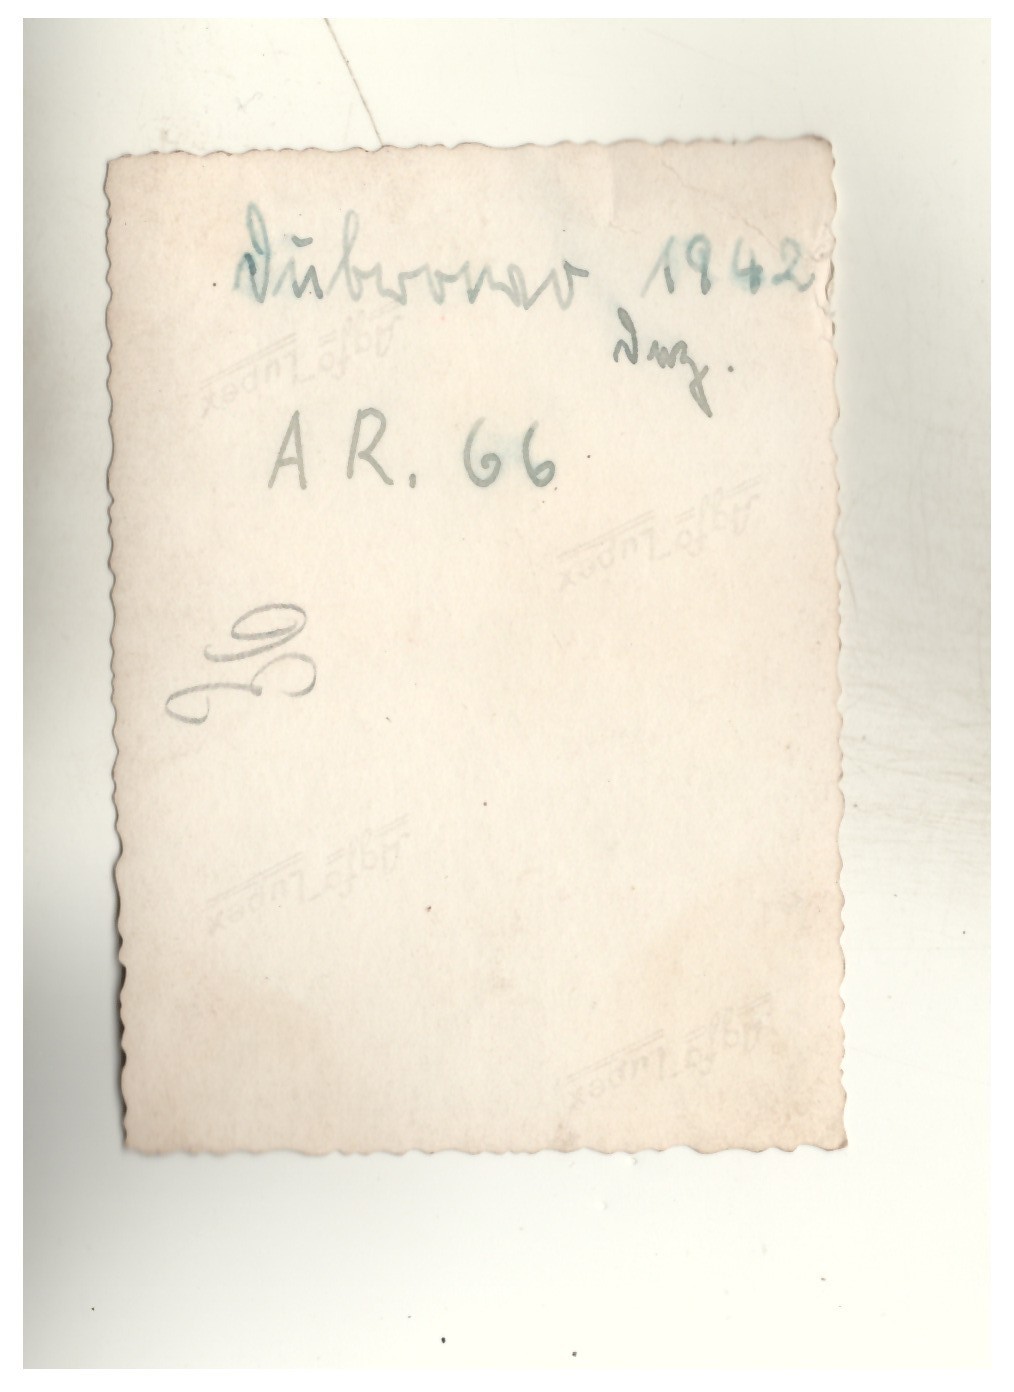 Dubrowo 1942
Dez.
AR. 66
Agfa Lupex
Agfa Lupex
Agfa Lupex
Agfa Lupex